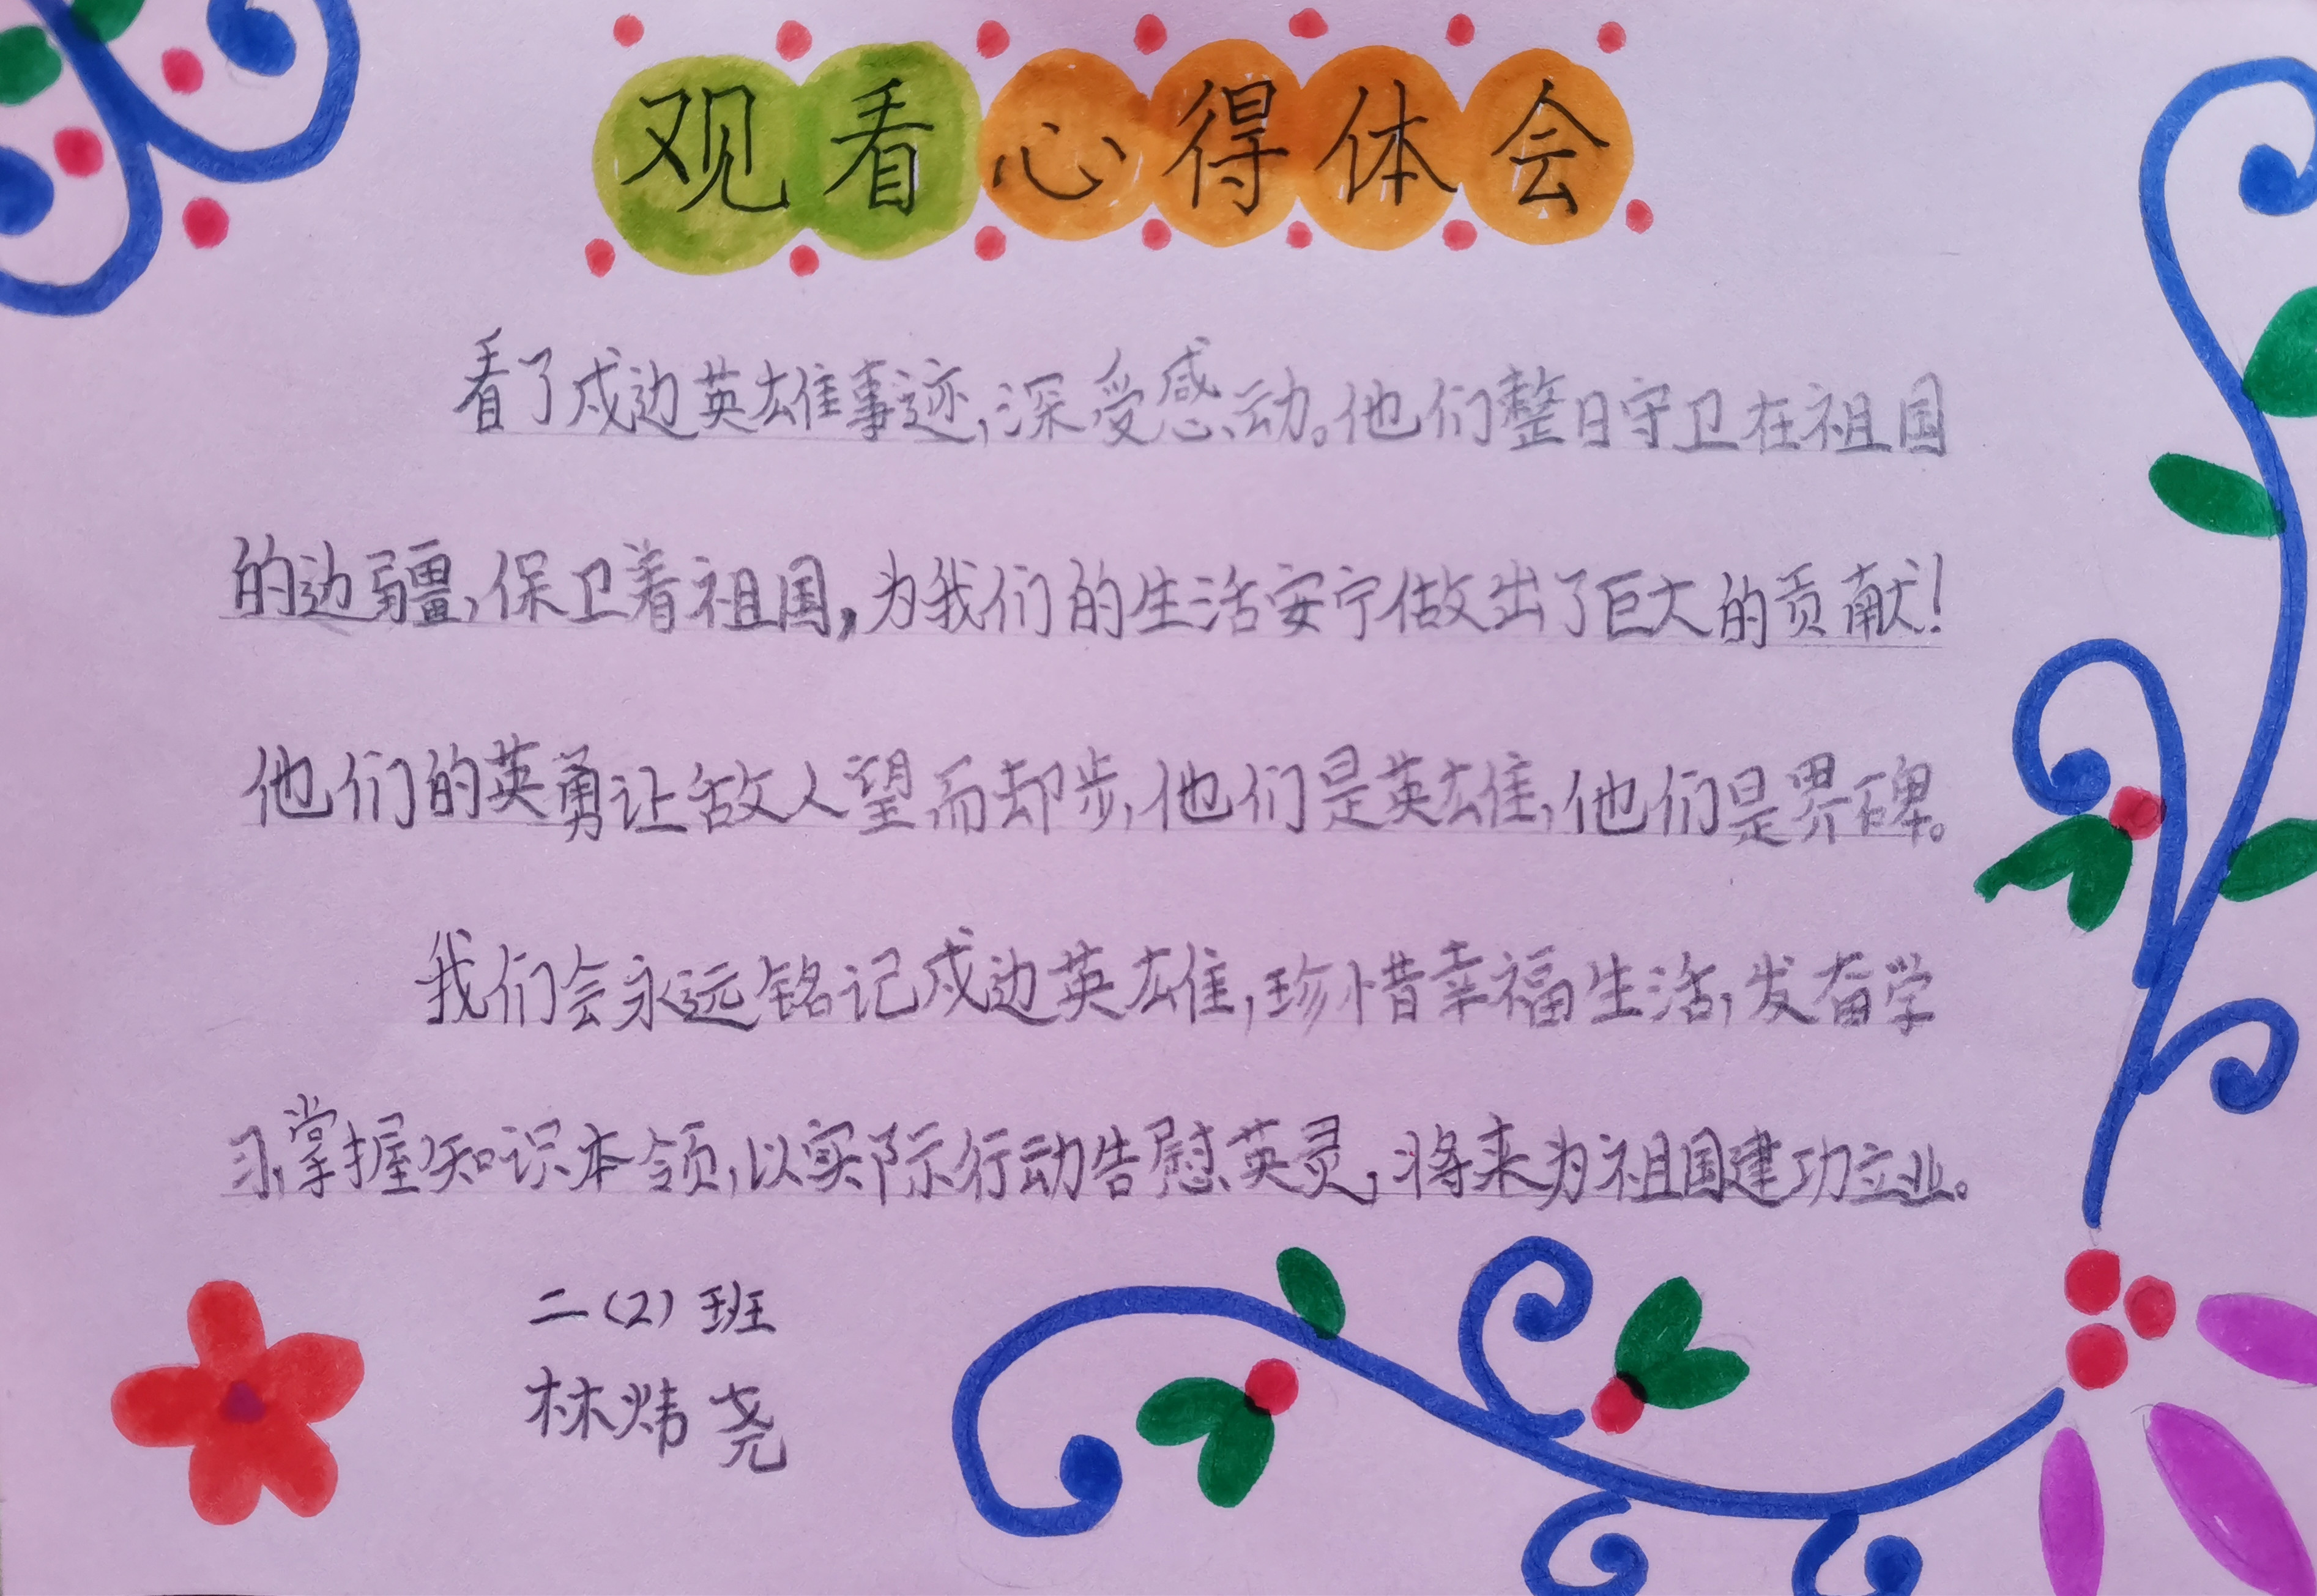 观看心得体会
看了戍边英雄事迹,深受感动。他们整日守卫在祖国
的边疆,保卫着祖国,为我们的生活安宁做出了巨大的贡献!
他们的英勇让敌人望而却步,他们是英雄,他们是界碑。
我们会永远铭记戍边英雄,珍惜幸福生活,发奋学
习,掌握知识本领,以实际行动告慰英灵,将来为祖国建功立业。
二(2)班
林炜尧